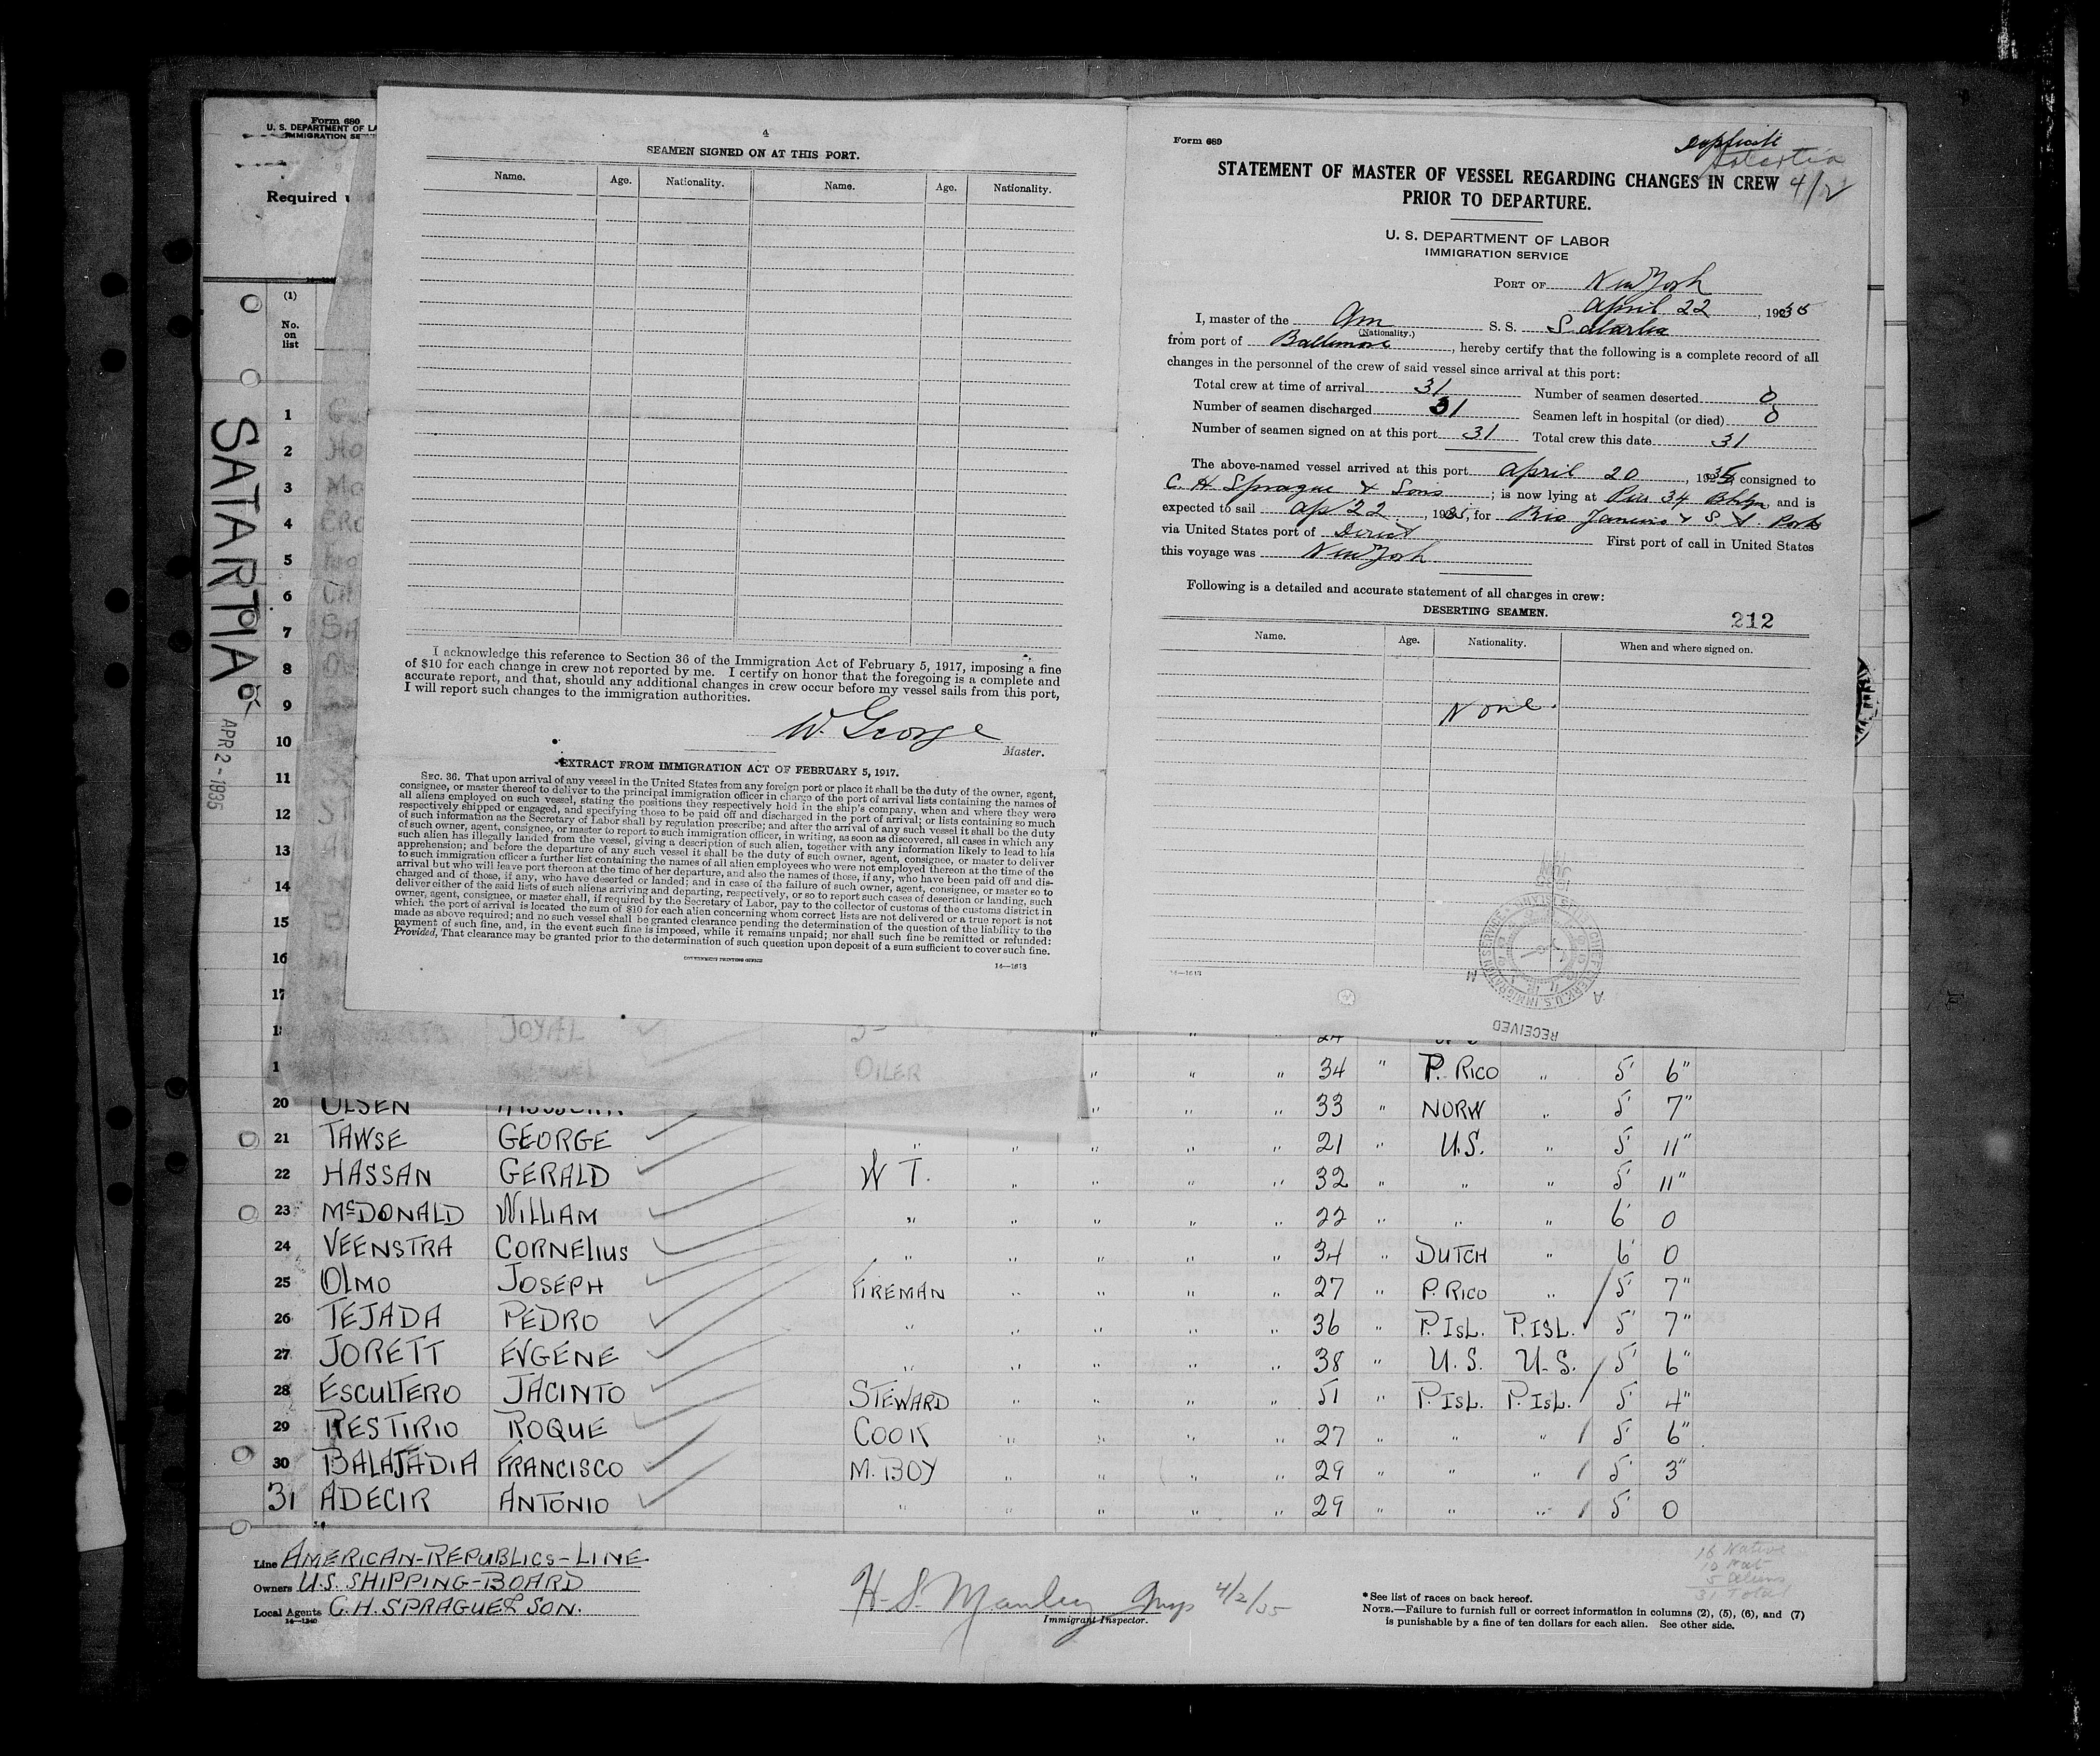 Form 680
U. S. DEPARTMENT OF LA
IMMIGRATION SE
Required
(1)
No.
on
list
1
2
3
4
5
6
7
8
9
10
11
12
13
14
15
16
17
SATARTIA
APR 2 - 1935
4
SEAMEN SIGNED ON AT THIS PORT.
Name. Age. Nationality. Name. Age. Nationality.
I acknowledge this reference to Section 36 of the Immigration Act of February 5, 1917, imposing a fine
of $10 for each change in crew not reported by me. I certify on honor that the foregoing is a complete and
accurate report, and that, should any additional changes in crew occur before my vessel sails from this port,
I will report such changes to the immigration authorities.
W. George
Master.
EXTRACT FROM IMMIGRATION ACT OF FEBRUARY 5, 1917.
SEC. 36. That upon arrival of any vessel in the United States from any foreign port or place it shall be the duty of the owner, agent,
consignee, or master thereof to deliver to the principal immigration officer in charge of the port of arrival lists containing the names of
all aliens employed on such vessel, stating the positions they respectively hold in the ship's company, when and where they were
respectively shipped or engaged, and specifying those to be paid off and discharged in the port of arrival; or lists containing so much
of such information as the Secretary of Labor shall by regulation prescribe; and after the arrival of any such vessel it shall be the duty
of such owner, agent, consignee, or master to report to such immigration officer, in writing, as soon as discovered, all cases in which any
such alien has illegally landed from the vessel, giving a description of such alien, together with any information likely to lead to his
apprehension; and before the departure of any such vessel it shall be the duty of such owner, agent, consignee, or master to deliver
to such immigration officer a further list containing the names of all alien employees who were not employed thereon at the time of the
arrival but who will leave port thereon at the time of her departure, and also the names of those, if any, who have been paid off and dis-
charged and of those, if any, who have deserted or landed; and in case of the failure of such owner, agent, consignee, or master so to
deliver either of the said lists of such aliens arriving and departing, respectively, or so to report such cases of desertion or landing, such
owner, agent, consignee, or master shall, if required by the Secretary of Labor, pay to the collector of customs of the customs district in
which the port of arrival is located the sum of $10 for each alien concerning whom correct lists are not delivered or a true report is not
made as above required; and no such vessel shall be granted clearance pending the determination of the question of the liability to the
payment of such fine, and, in the event such fine is imposed, while it remains unpaid; nor shall such fine be remitted or refunded:
Provided, That clearance may be granted prior to the determination of such question upon deposit of a sum sufficient to cover such fine.
GOVERNMENT PRINTING OFFICE
14—1613
Form 689
duplicate
Satartia
4/2
STATEMENT OF MASTER OF VESSEL REGARDING CHANGES IN CREW
PRIOR TO DEPARTURE.
U. S. DEPARTMENT OF LABOR
IMMIGRATION SERVICE
PORT OF New York
April 22, 1935
I, master of the Am S. S. Satartia
(Nationality.)
from port of Baltimore, hereby certify that the following is a complete record of all
changes in the personnel of the crew of said vessel since arrival at this port:
Total crew at time of arrival 31 Number of seamen deserted 0
Number of seamen discharged 31 Seamen left in hospital (or died) 0
Number of seamen signed on at this port 31 Total crew this date 31
The above-named vessel arrived at this port April 20, 1935, consigned to
C. H. Sprague & Sons; is now lying at Pier 34 Bklyn, and is
expected to sail Ap 22, 1935, for Rio Janeiro & S. A. Ports
via United States port of Direct First port of call in United States
this voyage was New York
Following is a detailed and accurate statement of all changes in crew:
DESERTING SEAMEN.
212
Name. Age. Nationality. When and where signed on.
None.
14—1613
RECEIVED
JOYAL
OILER
34 " P. RICO " 5' 6"
20 OLSEN " " " 33 " NORW " 5' 7"
21 TAWSE GEORGE " " " " " 21 " U.S. " 5' 11"
22 HASSAN GERALD W T. " " " " 32 " " " 5' 11"
23 McDONALD WILLIAM " " " " " 22 " " " 6' 0
24 VEENSTRA CORNELIUS " " " " " 34 " DUTCH " 6' 0
25 OLMO JOSEPH FIREMAN " " " " 27 " P. RICO " 5' 7"
26 TEJADA PEDRO " " " " " 36 " P. ISL. P. ISL. 5' 7"
27 JORETT EVGENE " " " " " 38 " U. S. U. S. 5' 6"
28 ESCULTERO JACINTO STEWARD " " " " 51 " P. ISL. P. ISL. 5' 4"
29 RESTIRIO ROQUE COOK " " " " 27 " " " 5' 6"
30 BALAJADIA FRANCISCO M. BOY " " " " 29 " " " 5' 3"
31 ADECIR ANTONIO " " " " " 29 " " " 5' 0
Line AMERICAN-REPUBLICS-LINE
Owners U.S. SHIPPING-BOARD
Local Agents C. H. SPRAGUE & SON.
14—1240
H. S. Manley Insp 4/2/35
Immigrant Inspector.
16 Native
10 Nat
5 Aliens
31 Total
* See list of races on back hereof.
NOTE.—Failure to furnish full or correct information in columns (2), (5), (6), and (7)
is punishable by a fine of ten dollars for each alien. See other side.